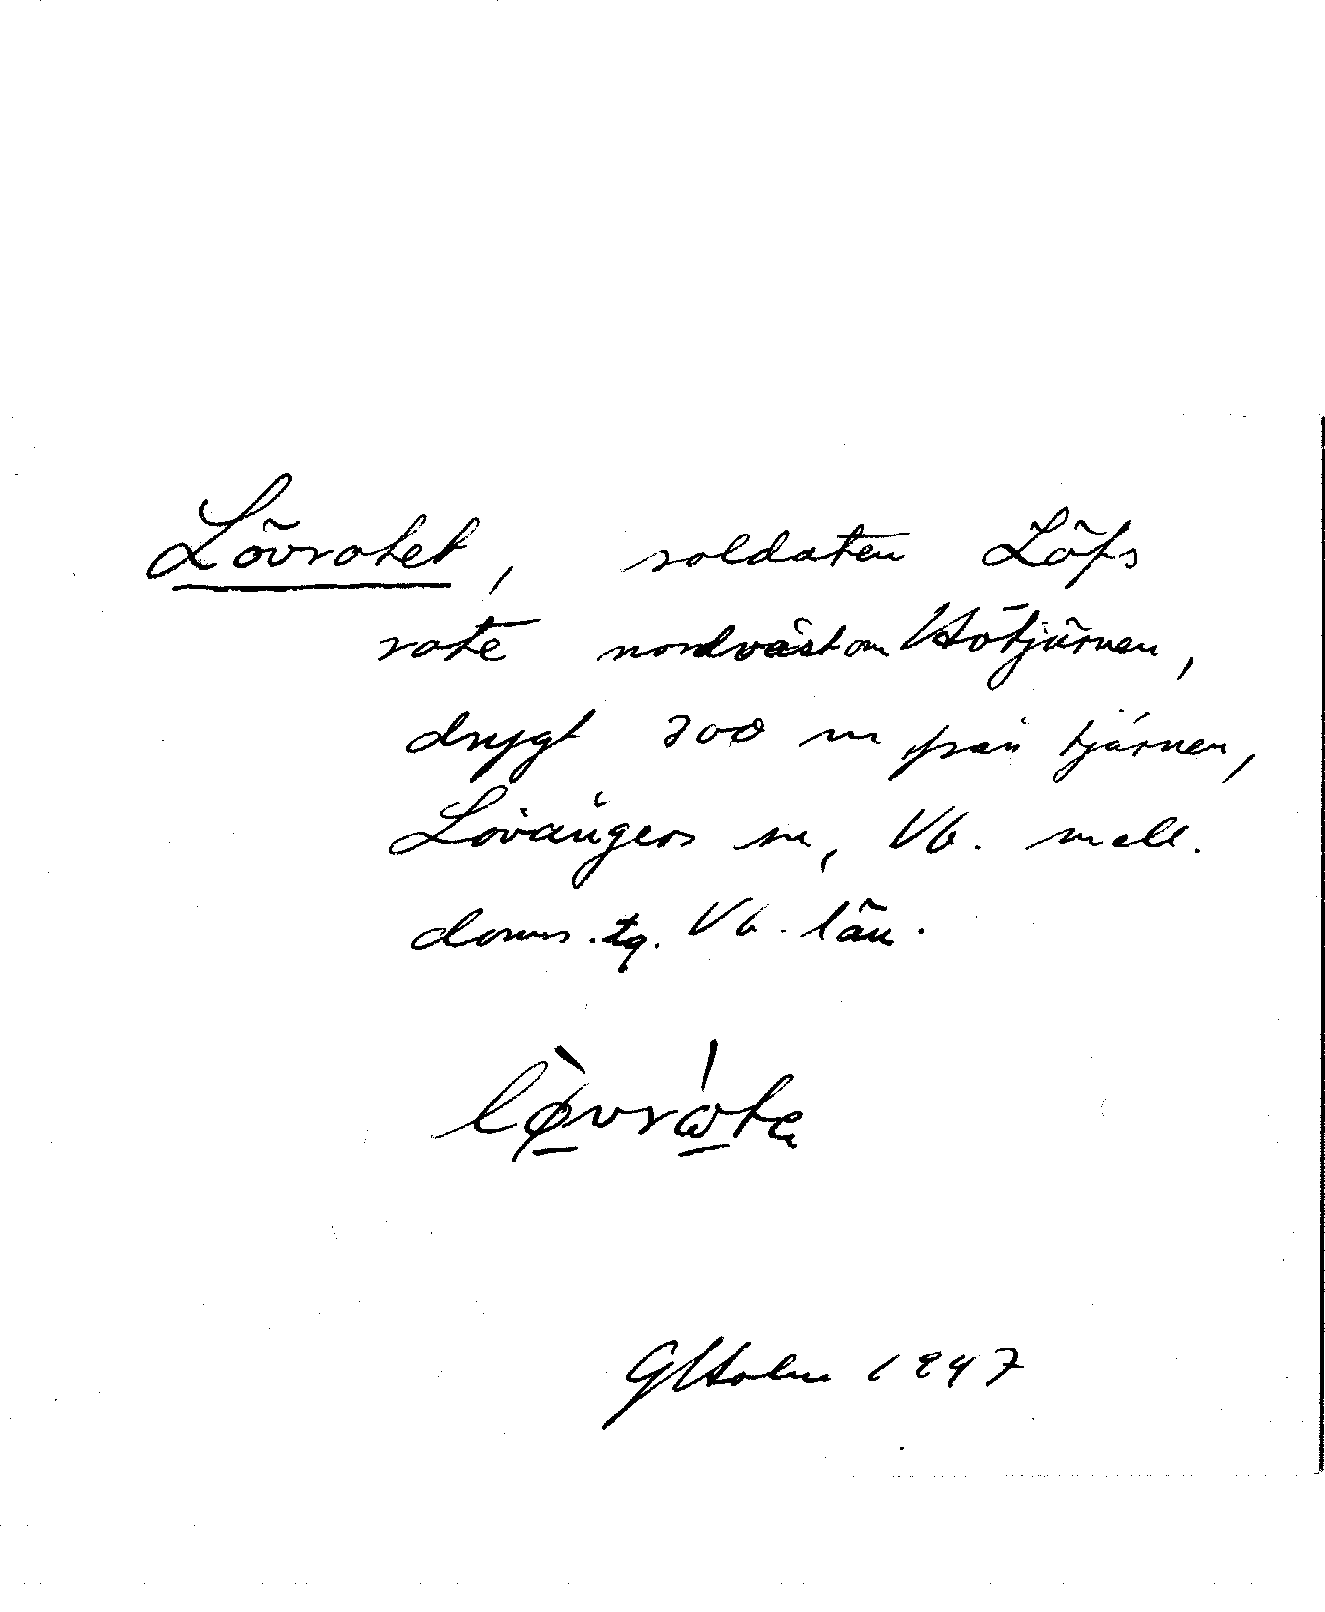 Lövrotet, soldaten Löfs
rote nordväst om Hötjärnen,
drygt 300 m från tjärnen,
Lövångers sn, Vb. mell.
doms. tg. Vb. län.
GHolm 1947